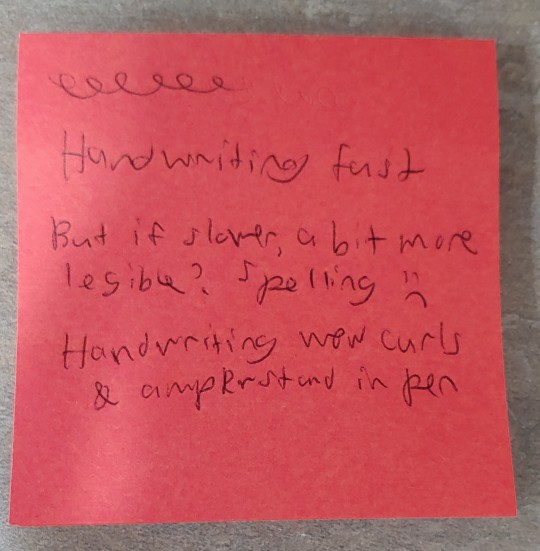 Handwriting fast
But if slower, a bit more
legible? Spelling :(
Handwriting wow curls
& ampersand in pen